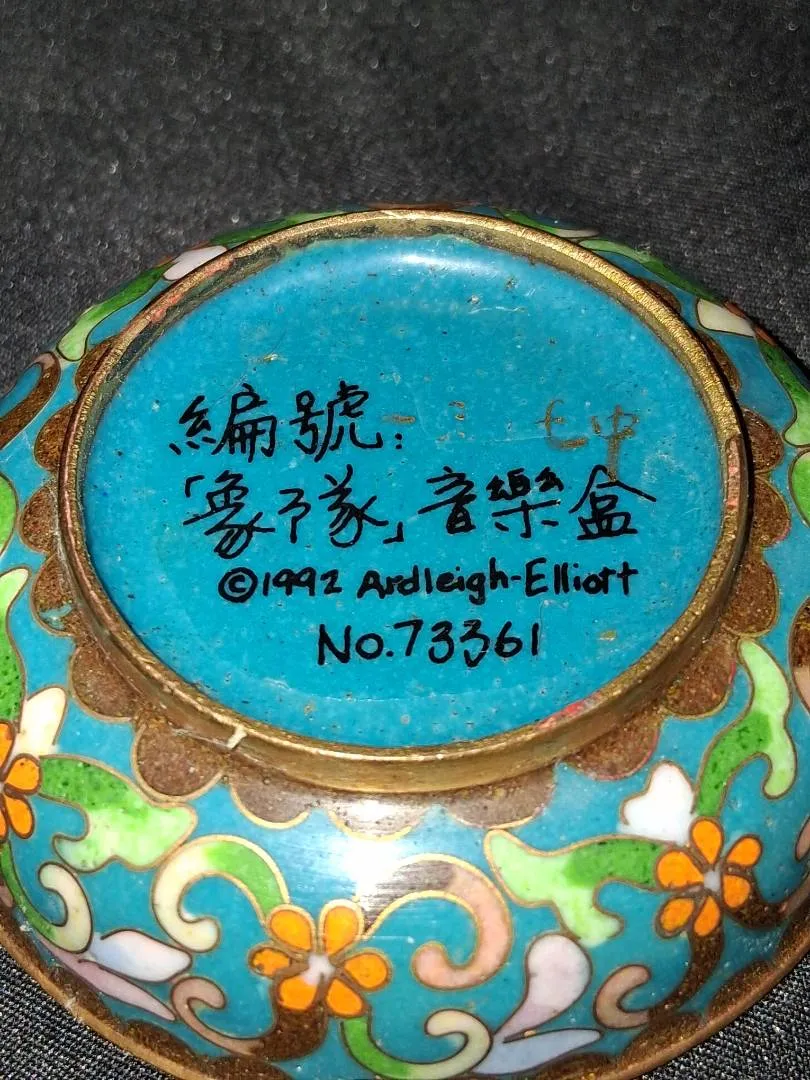 編號:
「象隊」音樂盒
©1992 Ardleigh-Elliott
No.73361